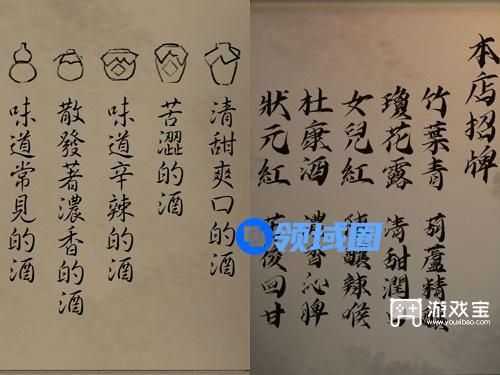 清甜爽口的酒
苦澀的酒
味道辛辣的酒
散發著濃香的酒
味道常見的酒
本店招牌
竹葉青 葫蘆精
瓊花露 清甜潤
女兒紅 釀辣喉
杜康酒 濃香沁脾
狀元紅 回甘
领域圈
游戏宝
www.youxibao.com